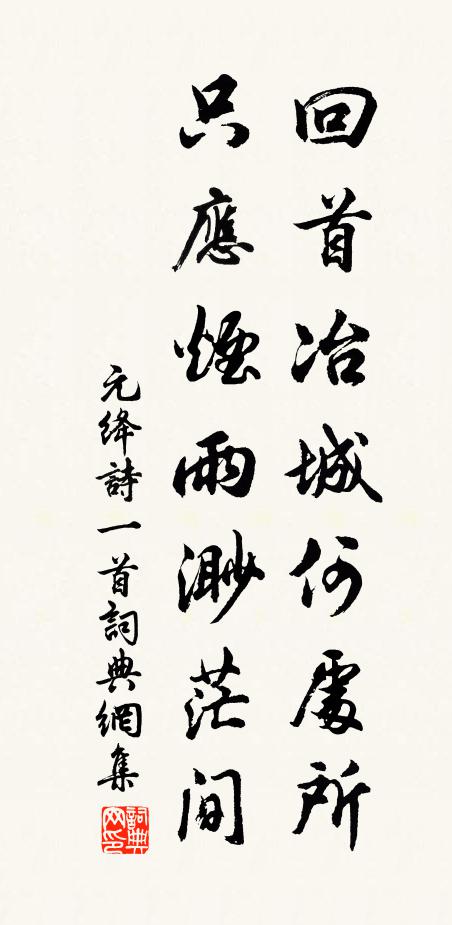 回首冶城何處所
只應煙雨渺茫間
元绛詩一首詞典網集
詞典網印